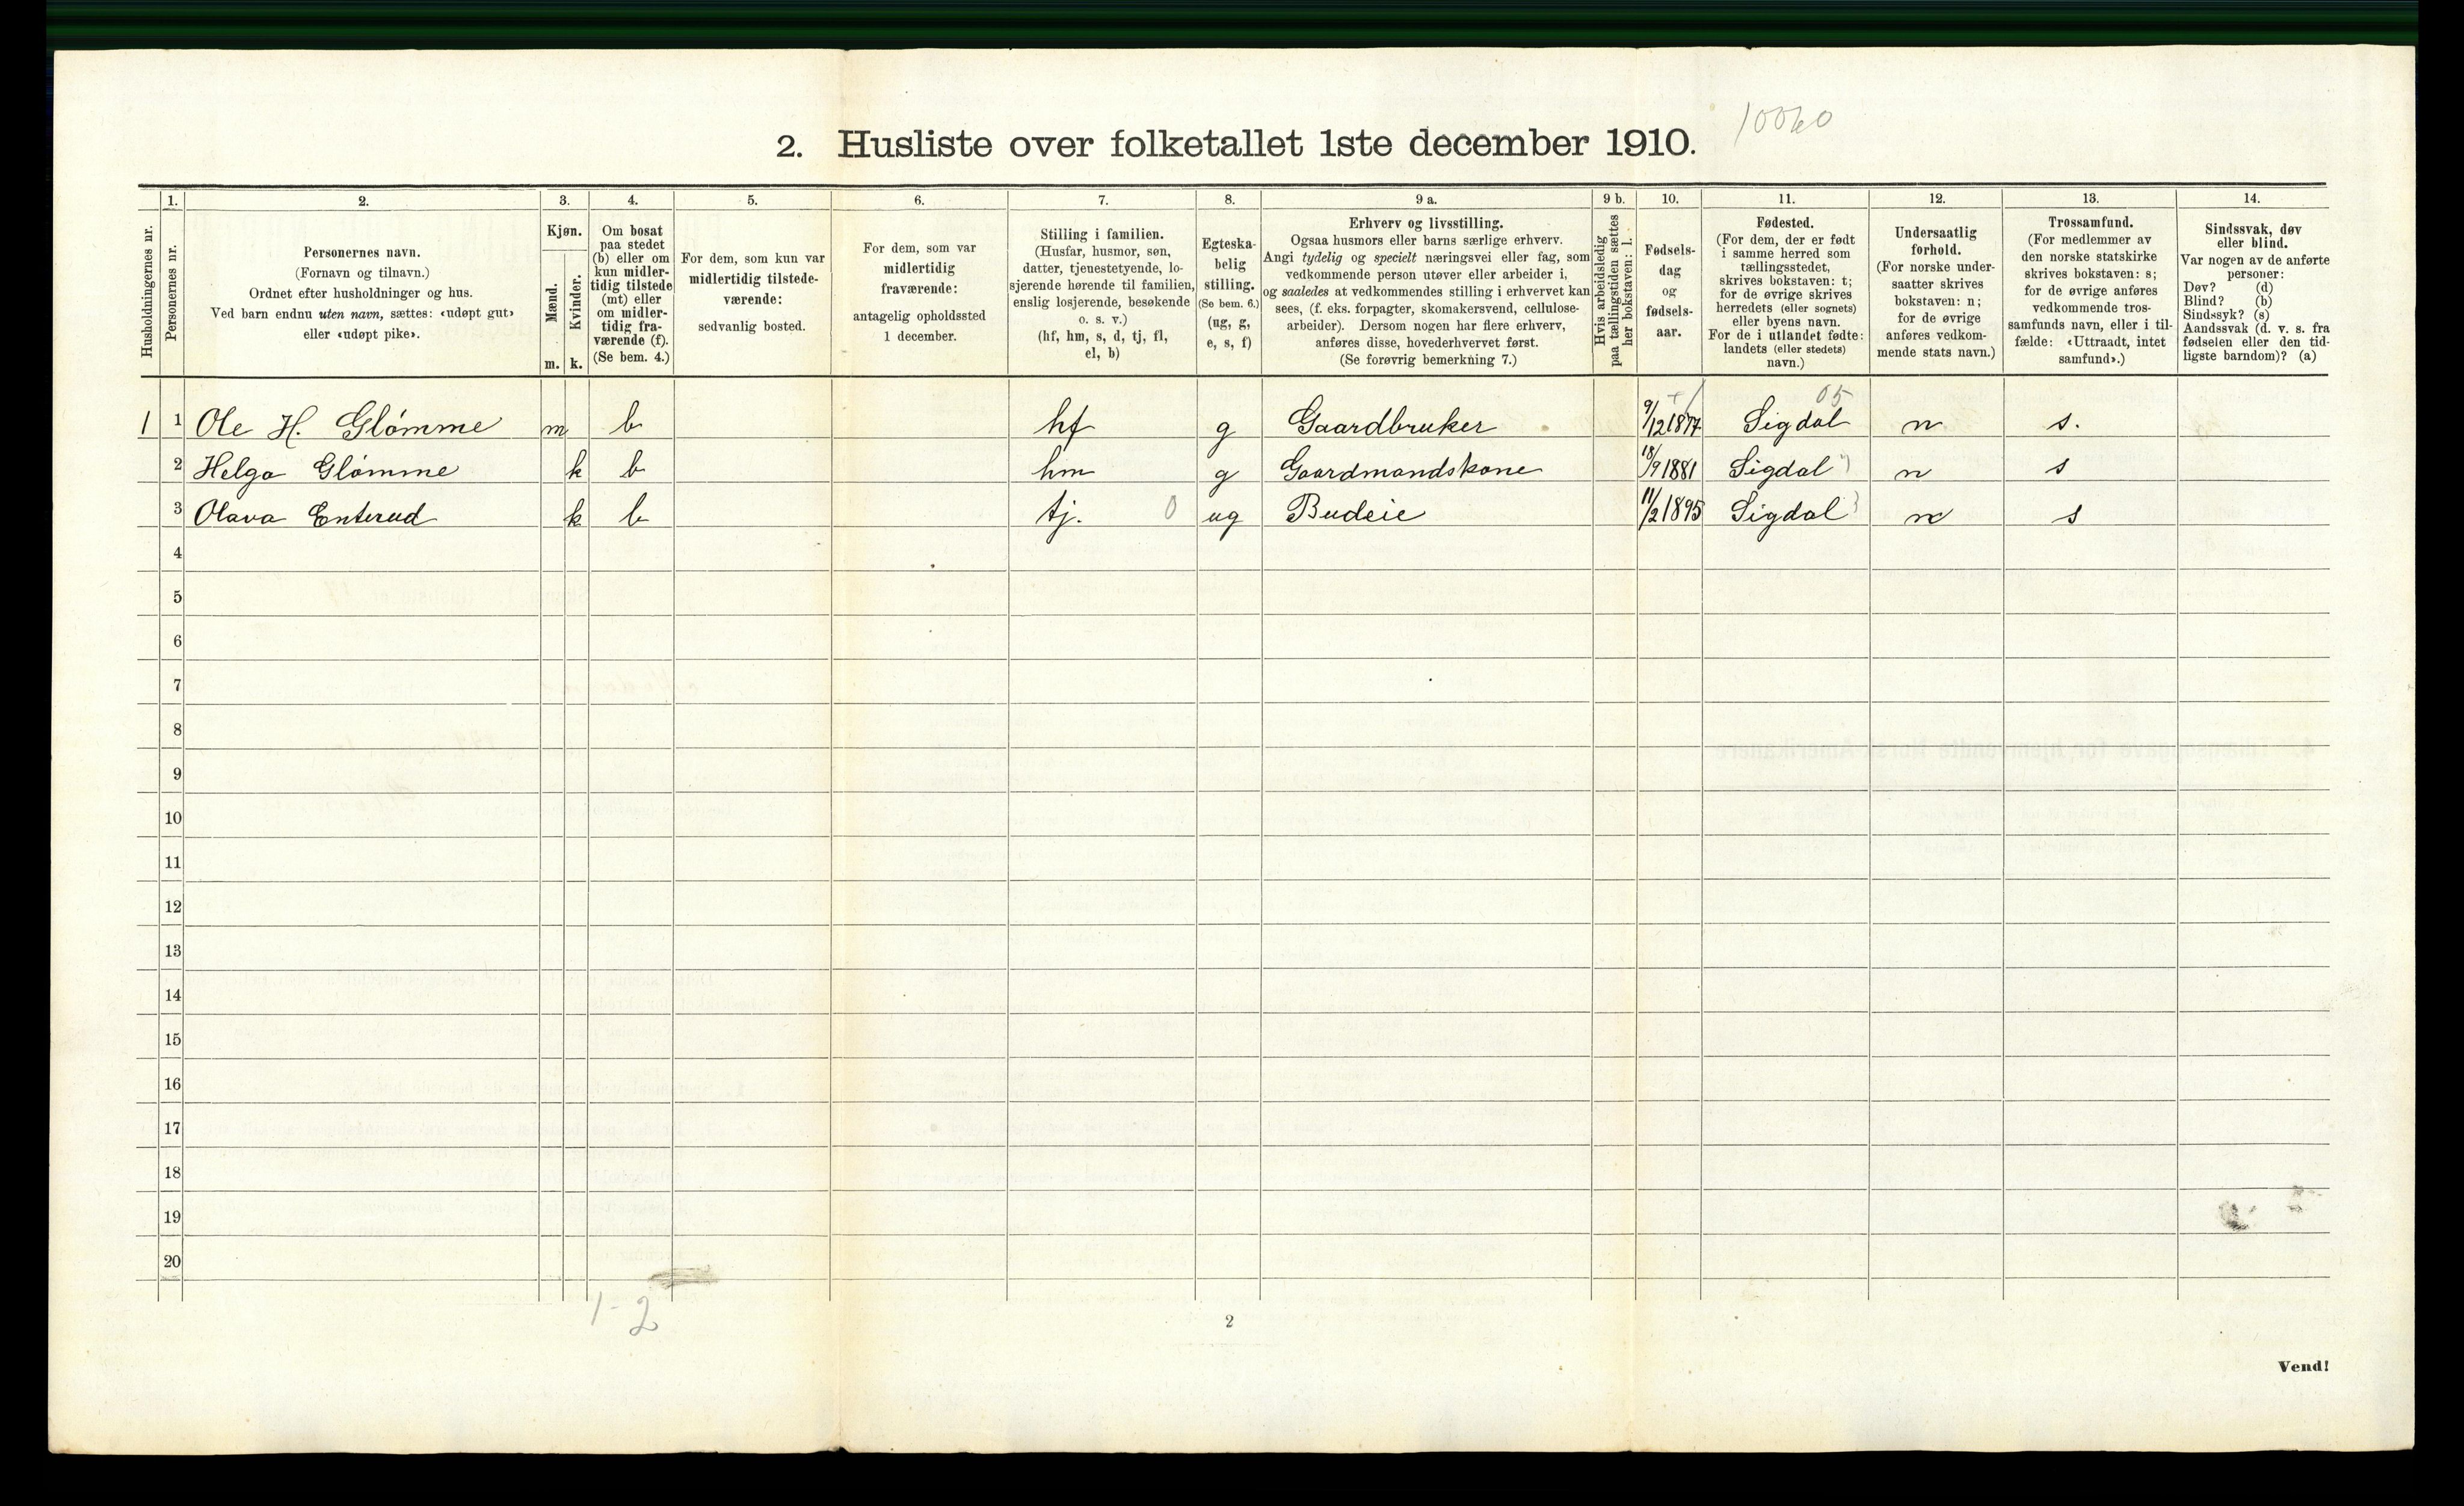 10060
2. Husliste over folketallet 1ste december 1910.
Husholdningernes nr.
1.
Personernes nr.
2.
Personernes navn.
(Fornavn og tilnavn.)
Ordnet efter husholdninger og hus.
Ved barn endnu uten navn, sættes: «udøpt gut»
eller «udøpt pike».
3.
Kjøn.
Mænd.
m.
Kvinder.
k.
4.
Om bosat
paa stedet
(b) eller om
kun midler-
tidig tilstede
(mt) eller
om midler-
tidig fra-
værende (f).
(Se bem. 4.)
5.
For dem, som kun var
midlertidig tilstede-
værende:
sedvanlig bosted.
6.
For dem, som var
midlertidig
fraværende:
antagelig opholdssted
1 december.
7.
Stilling i familien.
(Husfar, husmor, søn,
datter, tjenestetyende, lo-
sjerende hørende til familien,
enslig losjerende, besøkende
o. s. v.)
(hf, hm, s, d, tj, fl,
el, b)
8.
Egteska-
belig
stilling.
(Se bem. 6.)
(ug, g,
e, s, f)
9 a.
Erhverv og livsstilling.
Ogsaa husmors eller barns særlige erhverv.
Angi tydelig og specielt næringsvei eller fag, som
vedkommende person utøver eller arbeider i,
og saaledes at vedkommendes stilling i erhvervet kan
sees, (f. eks. forpagter, skomakersvend, cellulose-
arbeider). Dersom nogen har flere erhverv,
anføres disse, hovederhvervet først.
(Se forøvrig bemerkning 7.)
9 b.
Hvis arbeidsledig
paa tællingstiden sættes
her bokstaven: l.
10.
Fødsels-
dag
og
fødsels-
aar.
11.
Fødested.
(For dem, der er født
i samme herred som
tællingsstedet,
skrives bokstaven: t;
for de øvrige skrives
herredets (eller sognets)
eller byens navn.
For de i utlandet fødte:
landets (eller stedets)
navn.)
12.
Undersaatlig
forhold.
(For norske under-
saatter skrives
bokstaven: n;
for de øvrige
anføres vedkom-
mende stats navn.)
13.
Trossamfund.
(For medlemmer av
den norske statskirke
skrives bokstaven: s;
for de øvrige anføres
vedkommende tros-
samfunds navn, eller i til-
fælde: «Uttraadt, intet
samfund».)
14.
Sindssvak, døv
eller blind.
Var nogen av de anførte
personer:
Døv? (d)
Blind? (b)
Sindssyk? (s)
Aandssvak (d. v. s. fra
fødselen eller den tid-
ligste barndom)? (a)
05
1 1 Ole H. Glømme m b hf g Gaardbruker 9/12 1877 Sigdal n s.
2 Helga Glømme k b hm g Gaardmandskone 18/9 1881 Sigdal n s
3 Olava Enterud k b tj. 0 ug Budeie 11/2 1895 Sigdal n s
4
5
6
7
8
9
10
11
12
13
14
15
16
17
18
19
20
1-2
2
Vend!